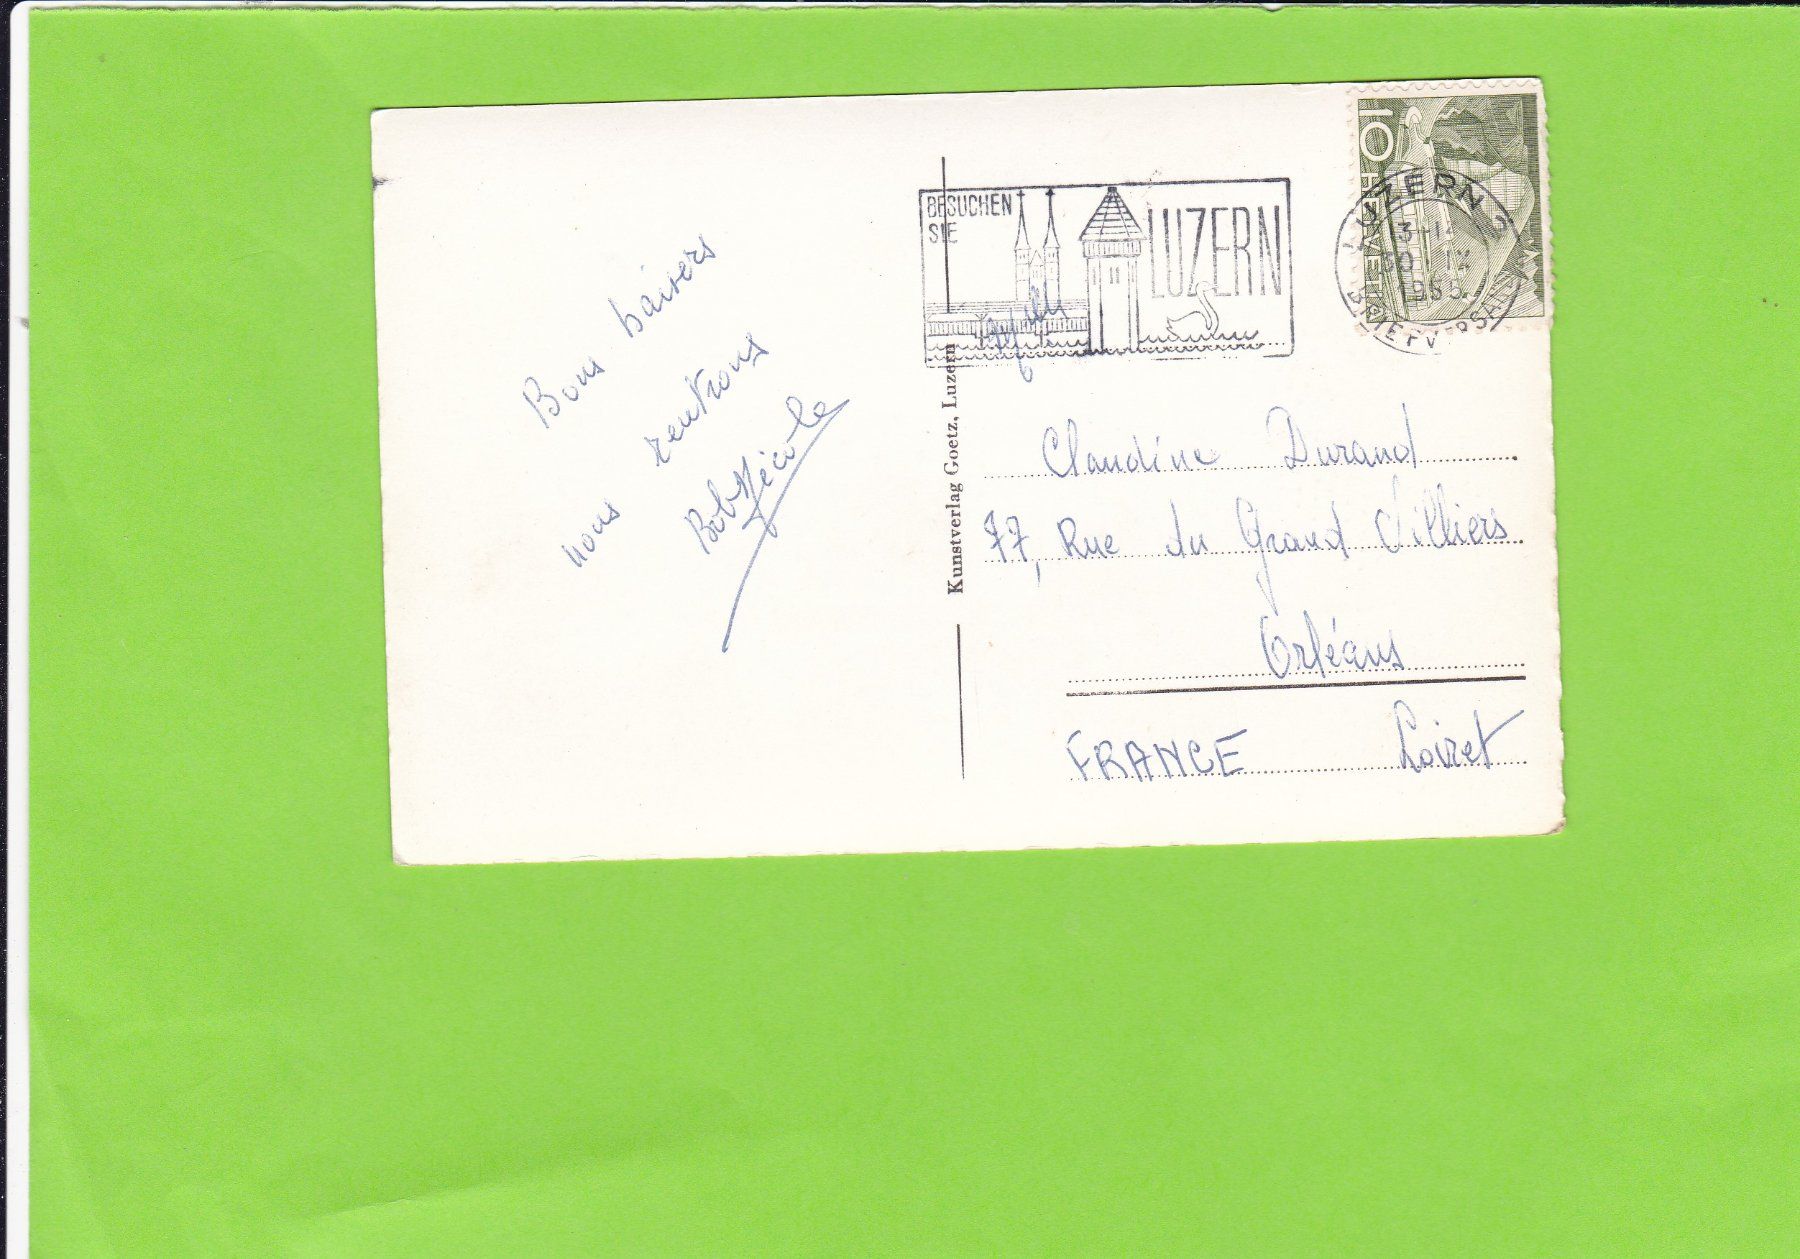 Bons baisers
nous rentrons
Bob Nicole
BESUCHEN
SIE
LUZERN
10
HELVETIA
LUZERN 3
13-14
30 IX
1955
BRIEFVERSAND
Kunstverlag Goetz, Luzern
Claudine Durand
77, Rue du Grand Villiers
Orléans
FRANCE Loiret